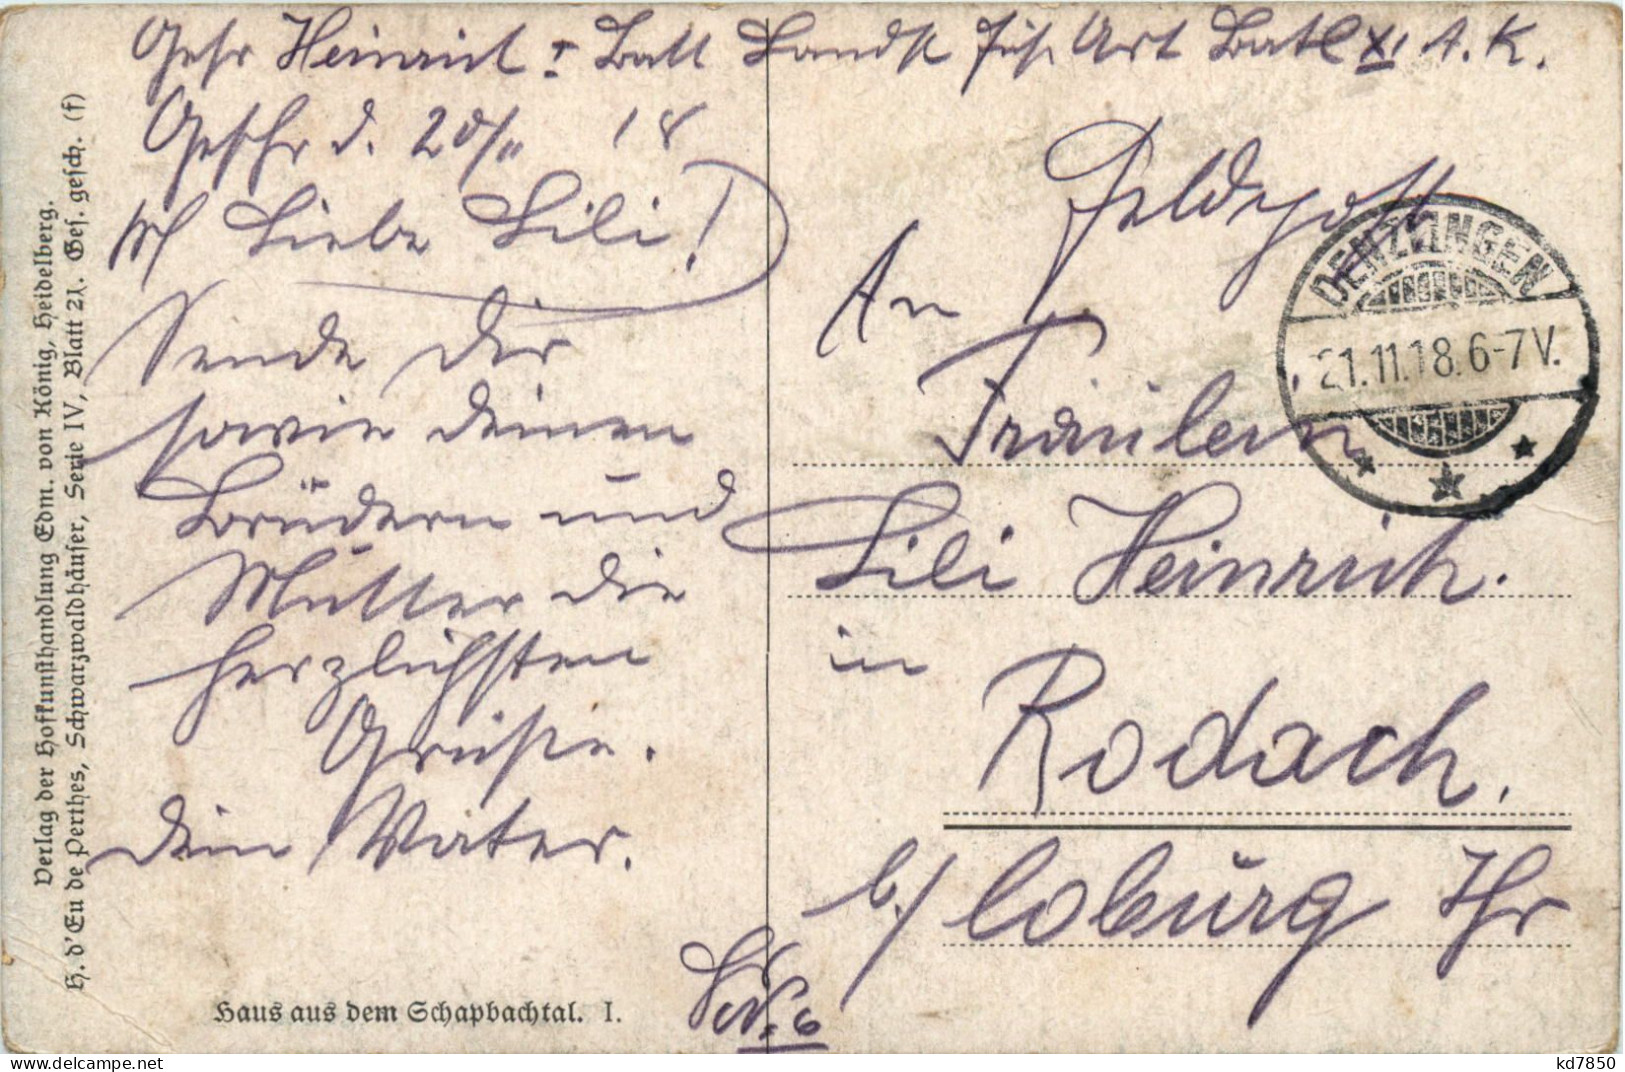 Gefr Heinrich I Batt Landst Fuß Art Batl XI A. K.
Geschr d. 20/11 18
Liebe Lili!
Sende Dir
sowie deinen
Brüdern und
Mutter die
herzlichsten
Grüße.
Dein Vater.
Feldpost
An
Fräulein
Lili Heinrich.
in
Rodach.
b./ Coburg Thr
No 6
DENZLINGEN
21.11.18.6-7V.
Haus aus dem Schapbachtal. I.
Verlag der Hofkunsthandlung Edm. von König, Heidelberg.
H. d'En de Perthes, Schwarzwaldhäuser, Serie IV, Blatt 21. Ges. gesch. (f)
delcampe.net
kd7850